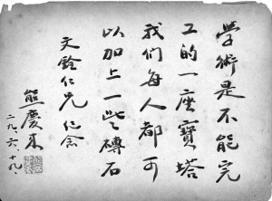 學術是不能完
工的一座寶塔
我们每人都可
以加上一些磚石
文銓仁兄 纪念
熊慶来
二九、六、十九、